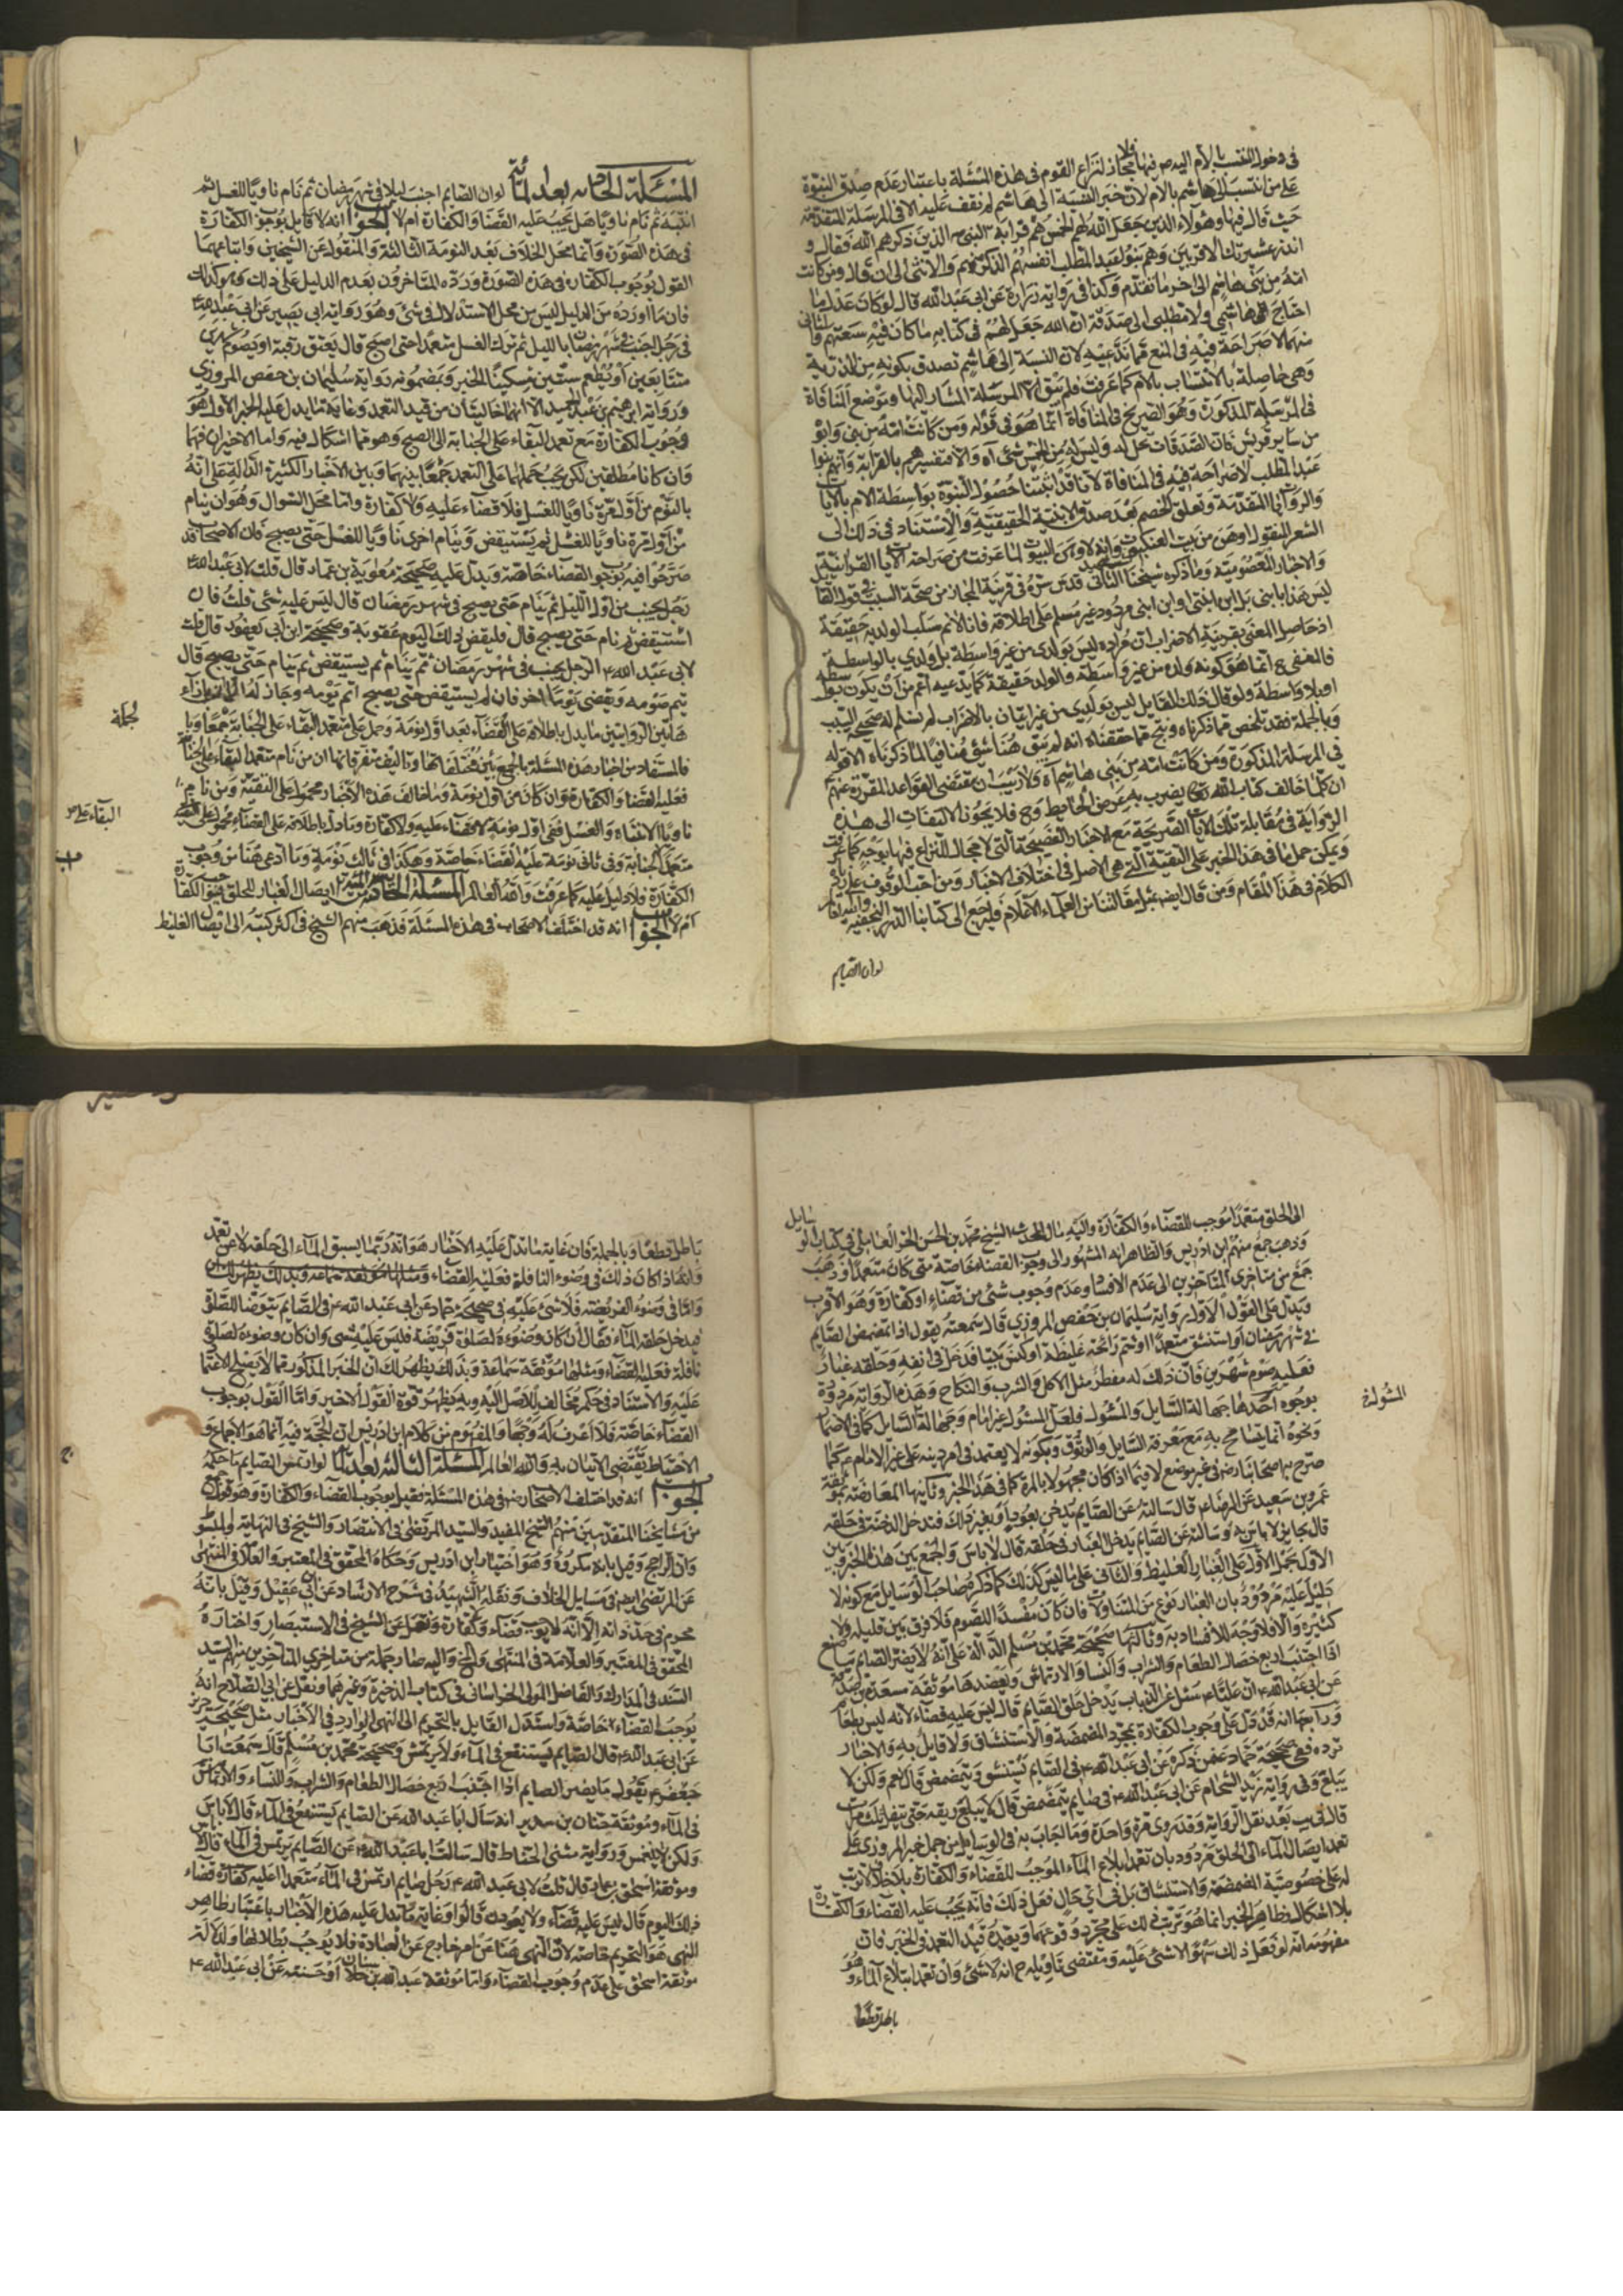 في دخول المنتسب بالام اليه ص فيها فلا مجاز لنزاع القوم في هذه المسئلة باعتبار عدم صدق البنوة
على من انتسب الى هاشم بالام لان خبر النسبة الى هاشم لم نقف عليه الا في المرسلة المتقدمة
حيث قال فيها وهؤلاء الذين جعل الله لهم الخمس هم قرابة النبي ص الذين ذكرهم الله فقال و
انذر عشيرتك الاقربين وهم بنو عبد المطلب انفسهم الذكر منهم والانثى الى ان قال ومن كانت
امه من بني هاشم الى اخر ما تقدم وكذا في رواية زرارة عن ابي عبد الله قال لو كان عدل ما
احتاج هاشمي ولا مطلبي الى صدقة ان الله جعل لهم في كتابه ما كان فيه سعتهم والثاني
منهما لا صراحة فيه في المنع مما ندعيه لان النسبة الى هاشم تصدق بكونه من الذرية
وهي حاصلة بالانتساب بالام كما عرفت فلم يبق الا المرسلة المشار اليها وموضع المنافاة
في المرسلة المذكورة وهو الصريح في المنافاة انما هو في قوله ومن كانت امه من بني هاشم وابوه
من ساير قريش فان الصدقات تحل له وليس له من الخمس شئ اه والا فتفسيرهم بالقرابة وانهم بنوا
عبد المطلب لا صراحة فيه في المنافاة لانا قد اثبتنا حصول البنوة بواسطة الام بالايات
والروايات المتقدمة وتعلق الخصم بعدم صدق الابنية الحقيقية والاستناد في ذلك الى
الشعر المنقول اوهن من بيت العنكبوت وانه لاوهن البيوت لما عرفت من صراحة الايات القرآنية
والاخبار المعصومية وما ذكره شيخنا الشهيد الثاني قدس سره في قرينة المجاز من صحة السلب في قول القائل
ليس هذا بابني بل ابن ابنتي او ابن ابني مردود غير مسلم على اطلاقه فانا لا نسلم سلب الولدية حقيقة
اذ حاصل المعنى بقرينة الاضراب ان مراده ليس بولدي من غير واسطة بل ولدي بالواسطة
فالمنفي ح انما هو كونه ولده من غير واسطة والولد حقيقة كما يدعيه اعم من ان يكون بواسطة
او بلا واسطة ولو قال ذلك القايل ليس بولدي من غير اتيان بالاضراب لم نسلم له صحة السلب
وبالجملة فقد تلخص مما ذكرناه ونتج مما حققناه انه لم يبق هنا شئ منافيا لما ذكرناه الا قوله
في المرسلة المذكورة ومن كانت امه من بني هاشم اه ولا ريب ان مقتضى القواعد المقررة عنهم
ان كلما خالف كتاب الله تعالى يضرب به عرض الحايط وح فلا يجوز الالتفات الى هذه
الرواية في مقابلة تلك الايات الصريحة مع الاخبار الفصيحة التي لا مجال للنزاع فيها بوجه كما عرفت
ويمكن حمل ما في هذا الخبر على التقية التي هي الاصل في اختلاف الاخبار ومن احب الوقوف على زايد
الكلام في هذا المقام ومن قال ايضا بمثل مقالتنا من العلماء الاعلام فليرجع الى كتابنا الدرر النجفية والله العالم
لو ان الصايم
المسئلة الحادية بعد المائة لو ان الصايم اجنب ليلا في شهر رمضان ثم نام ناويا للغسل ثم
انتبه ثم نام ناويا هل يجب عليه القضا والكفارة ام لا الجواب انه لا قايل بوجوب الكفارة
في هذه الصورة وانما محل الخلاف بعد النومة الثالثة والمنقول عن الشيخين واتباعهما
القول بوجوب الكفارة في هذه الصورة ورده المتاخرون بعدم الدليل على ذلك وهو كذلك
فان ما اورده من الدليل ليس من محل الاستدلال في شئ وهو رواية ابي بصير عن ابي عبد الله ع
في رجل اجنب في شهر رمضان بالليل ثم ترك الغسل متعمدا حتى اصبح قال يعتق رقبة او يصوم شهرين
متتابعين او يطعم ستين مسكينا الخبر وبمضمونه رواية سليمان بن حفص المروزي
ورواية ابراهيم بن عبد الحميد الا انهما خاليتان من قيد التعمد وغاية ما يدل عليه الخبر الاول هو
وجوب الكفارة مع تعمد البقاء على الجنابة الى الصبح وهو مما لا اشكال فيه واما الاخيران فهما
وان كانا مطلقين لكن يجب حملهما على التعمد جمعا بينهما وبين الاخبار الكثيرة الدالة على انه
بالنوم من اول مرة ناويا للغسل فلا قضاء عليه ولا كفارة واما محل السؤال وهو ان ينام
من اول مرة ناويا للغسل ثم يستيقض وينام اخرى ناويا للغسل حتى يصبح فان الاصحاب قد
صرحوا فيه بوجوب القضاء خاصة ويدل عليه صحيحة معوية بن عمار قال قلت لابي عبد الله ع
رجل يجنب من اول الليل ثم ينام حتى يصبح في شهر رمضان قال ليس عليه شئ قلت فان
استيقض ثم نام حتى يصبح قال فليقض ذلك اليوم عقوبة وصحيحة ابن ابي يعفور قال قلت
لابي عبد الله ع الرجل يجنب في شهر رمضان ثم ينام ثم يستيقض ثم ينام حتى يصبح قال
يتم صومه ويقضي يوما اخر فان لم يستيقض حتى يصبح اتم يومه وجاز له
هاتين الروايتين ما يدل باطلاقه على القضاء بعد اول نومة وحمل على تعمد البقاء على الجنابة جمعا وبالجملة
فالمستفاد من اخبار هذه المسئلة بالجمع بين مختلفاتها وتاليف متفرقاتها ان من نام متعمدا البقاء على الجنابة
فعليه القضا والكفارة وان كان من اول نومة وما خالف هذه الاخبار محمول على التقية ومن نام
ناويا الانتباه والغسل ففي اول نومة لا قضاء عليه ولا كفارة وما دل باطلاقه على القضاء محمول على البقاء
متعمدا الجنابة وفي ثاني نومة عليه القضاء خاصة وهكذا في ثالث نومة وما ادعي هنا من وجوب
الكفارة فلا دليل عليه كما عرفت والله العالم المسئلة الثانية بعد المائة ايصال الغبار للحلق يوجب الكفارة
ام لا الجواب انه قد اختلف الاصحاب في هذه المسئلة فذهب منهم الشيخ في اكثر كتبه الى ان ايصال الغليظ
لجملة
البقاء على ص
الى الحلق متعمدا موجب للقضاء والكفارة واليه مال المحدث الشيخ محمد بن الحسن الحر العاملي في كتاب الوسايل
وذهب جمع منهم ابن ادريس والظاهر انه المشهور الى وجوب القضاء خاصة متى كان متعمدا وذهب
جمع من متاخري المتاخرين الى عدم الافساد وعدم وجوب شئ من قضاء او كفارة وهو الاقرب
ويدل على القول الاول رواية سليمان بن حفص المروزي قال سمعته يقول اذا تمضمض الصايم
في شهر رمضان او استنشق متعمدا او شم رائحة غليظة او كنس بيتا فدخل في انفه وحلقه غبار
فعليه صوم شهرين فان ذلك له مفطر مثل الاكل والشرب والنكاح وهذه الرواية مردودة
بوجوه احدها جهالة السايل والمسئول فلعل المسئول غير امام وجهالة السايل كما في الاضمار
ونحوه انما يتسامح به مع معرفة السايل والوثوق وبكونه لا يعتمد في امر دينه على غير الامام ع كما
صرح به اصحابنا رض في غير موضع لا فيما اذا كان مجهولا بالمرة كما في هذا الخبر وثانيها المعارضة بموثقة
عمرو بن سعيد عن الرضا ع قال سالته عن الصايم يدخن بعود او بغير ذلك فتدخل الدخنة في حلقه
قال جايز لا باس به وسالته عن الصايم يدخل الغبار في حلقه قال لا باس والجمع بين هذا الخبر وبين
الاول بحمل الاول على الغبار الغليظ والثاني على ما ليس كذلك كما ذكره صاحب الوسايل مع كونه لا
دليل عليه مردود بان الغبار نوع من المتناولات فان كان مفسدا للصوم فلا فرق بين قليله ولا
كثيره والا فلا وجه للافساد به وثالثها صحيحة محمد بن مسلم الدالة على انه لا يضر الصايم ما صنع
اذا اجتنب اربع خصال الطعام والشراب والنسا والارتماس ويعضدها موثقة مسعدة بن صدقة
عن ابي عبد الله ع ان عليا ع سئل عن الذباب يدخل حلق الصايم قال ليس عليه قضاء لانه ليس بطعام
ورابعها انه قد دل على وجوب الكفارة بمجرد المضمضة والاستنشاق ولا قايل به والاخبار
ترده ففي صحيحة حماد عمن ذكره عن ابي عبد الله ع في الصايم يستنشق ويتمضمض قال نعم ولكن لا
يبلغ وفي رواية زيد الشحام عن ابي عبد الله ع في صايم يتمضمض قال لا يبلغ ريقه حتى يبزق ثلث مرات
قال في يب بعد نقل الرواية وقد روي مرة واحدة وما اجاب به في الوسايل من حمل خبر المروزي على
تعمد ايصال الماء الى الحلق مردود بان تعمد ابلاع الماء الموجب للقضاء والكفارة بلا خلاف لا ترتب
له على خصوصية المضمضة والاستنشاق بل في اي حال فعل ذلك فانه يجب عليه القضاء والكفارة
بلا اشكال فظاهر الخبر انما هو ترتب ذلك على مجرد وقوعهما وبعده قيد التعمد في الخبر فان
مفهومه انه لو فعل ذلك سهوا لا شئ عليه ومقتضى تاويله ح انه لا شئ وان تعمد ابتلاع الماء وهو
باطل قطعا
المسئول ه
باطل قطعا وبالجملة فان غاية ما تدل عليه الاخبار هو انه ربما يسبق الماء الى حلقه لا عن تعمد
وانه اذا كان ذلك في وضوء النافلة فعليه القضاء
واما في وضوء الفريضة فلا شئ عليه ففي صحيحة حماد عن ابي عبد الله ع في الصايم يتوضا للصلوة
فيدخل حلقه الماء فقال ان كان وضوءه لصلوة فريضة فليس عليه شئ وان كان وضوءه لصلوة
نافلة فعليه القضاء ومثلها موثقة سماعة وبذلك يظهر لك ان الخبر المذكور مما لا يصلح الاعتماد
عليه والاستناد في حكم مخالف للاصل اليه وبه يظهر قوة القول الاخير واما القول بوجوب
القضاء خاصة فلا اعرف له وجها والمفهوم من كلام ابن ادريس ان الحجة فيه انما هو الاجماع و
الاحتياط يقتضي الاتيان به والله العالم المسئلة الثالثة بعد المائة لو ارتمس الصايم ما حكمه
الجواب انه قد اختلف الاصحاب رض في هذه المسئلة فقيل بوجوب القضاء والكفارة وهو قول
من مشايخنا المتقدمين منهم الشيخ المفيد والسيد المرتضى في الانتصار والشيخ في النهاية والمبسوط
وانه الراجح وقيل بانه مكروه وهو اختيار ابن ادريس وحكاه المحقق في المعتبر والعلامة في المنتهى
عن المرتضى ايضا في مسايل الخلاف ونقله الشهيد في شرح الارشاد عن ابن ابي عقيل وقيل بانه
محرم في حد ذاته الا انه لا يوجب قضاء ولا كفارة ونقل عن الشيخ في الاستبصار واختاره
المحقق في المعتبر والعلامة في المنتهى واليه صار جملة من متاخري المتاخرين منهم السيد
السند في المدارك والفاضل المولى الخراساني في كتاب الذخيرة وغيرهما ونقل عن ابي الصلاح انه
يوجب القضاء خاصة واستدل القايل بالتحريم الى النهي الوارد في الاخبار مثل صحيحة حريز
عن ابي عبد الله ع قال الصايم يستنقع في الماء ولا يرتمس وصحيحة محمد بن مسلم قال سمعت ابا
جعفر ع يقول ما يضر الصايم اذا اجتنب اربع خصال الطعام والشراب والنساء والارتماس
في الماء وموثقة حنان بن سدير انه سال ابا عبد الله عن الصايم يستنقع في الماء قال لا باس
ولكن لا ينغمس ورواية مثنى الحناط قال سالت ابا عبد الله ع عن الصايم يرتمس في الماء قال لا
وموثقة اسحق بن عمار قال قلت لابي عبد الله ع رجل صايم ارتمس في الماء متعمدا اعليه قضاء
ذلك اليوم قال ليس عليه قضاء ولا يعودن قالوا وغاية ما تدل عليه هذه الاخبار باعتبار ظاهر
النهي هو التحريم خاصة لان النهي هنا عن امر خارج عن العبادة فلا يوجب بطلانها ولدلالة
موثقة اسحق على عدم وجوب القضاء واما موثقة عبد الله بن سنان او حسنته عن ابي عبد الله ع